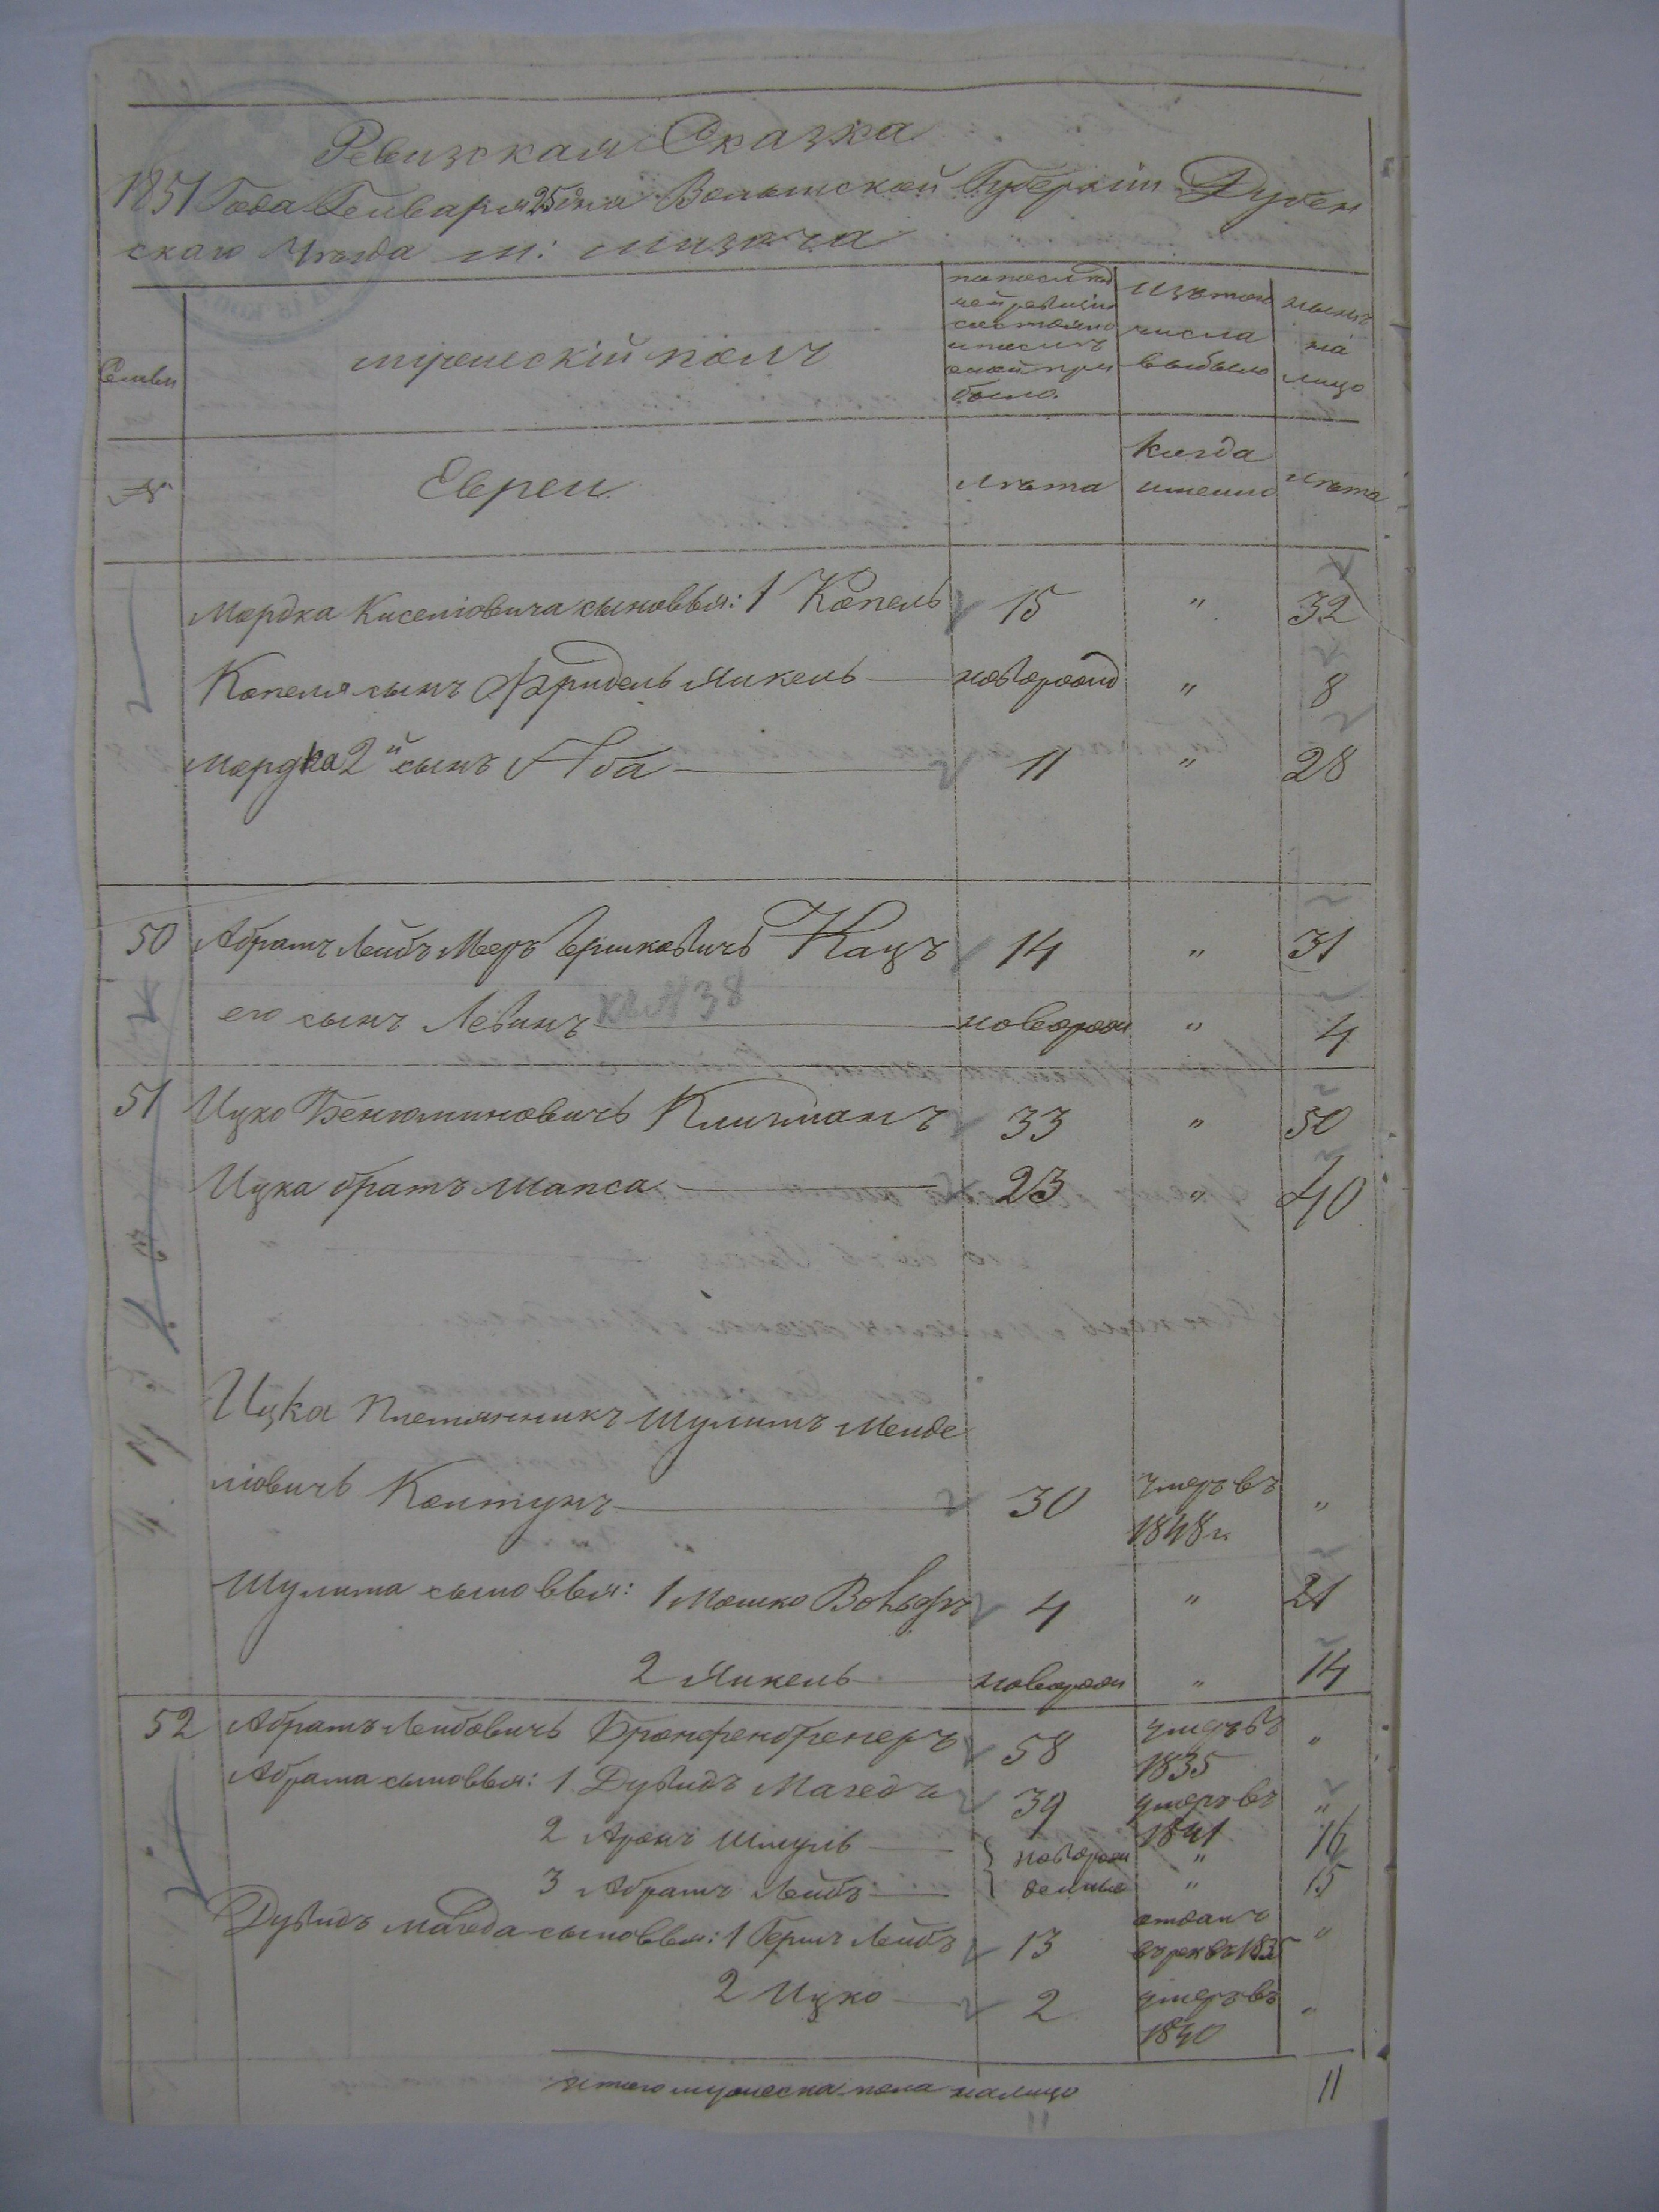 Ревизская Сказка
1851 Года Генваря 25 дня Волынской Губернии Дубен
скаго Уѣзда м: Мизоча
Семьи
мужескій полъ
по послѣд
ней ревизіи
состояло
и послѣ
оной при
было.
Изъ того
числа
выбыло
нынѣ
на
лицо
№
Евреи
лѣта
Когда
именно
лѣта
Мордка Киселіовича сыновья: 1 Копель 15 " 32
Копеля сынъ Фридель Янкель новорожд " 8
Мордка 2й сынъ Аба 11 " 28
50 Абрамъ Лейбъ Меръ Гершковичъ Кацъ 14 " 31
его сынъ Левинъ къ № 38 новорож " 4
51 Ицко Бенюминовичъ Клигманъ 33 " 50
Ицка братъ Шапса 23 " 40
Ицка племянникъ Шулимъ Менде
ліовичъ Колтунъ 30 умеръ въ 1848 г. "
Шулима сыновья: 1 Мошко Вольфъ 4 " 21
2 Янкель новорож " 14
52 Абрамъ Лейбовичъ Бронфенбренеръ 58 умеръ въ 1835 "
Абрама сыновья: 1 Дувидъ Магедъ 39 умеръ въ 1841 "
2 Аронъ Шмуль новорож " 16
3 Абрамъ Лейбъ денные " 15
Дувидъ Магеда сыновья: 1 Гершъ Лейбъ 13 отданъ въ рек въ 1835 "
2 Ицко 2 умеръ въ 1840 "
итого мужеска пола налицо 11